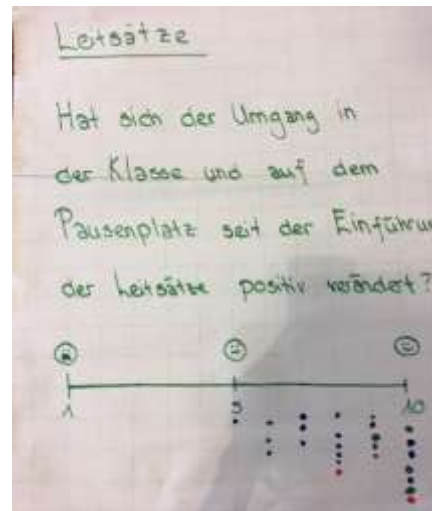 Leitsätze
Hat sich der Umgang in
der Klasse und auf dem
Pausenplatz seit der Einführun
der Leitsätze positiv verändert?
1 5 10